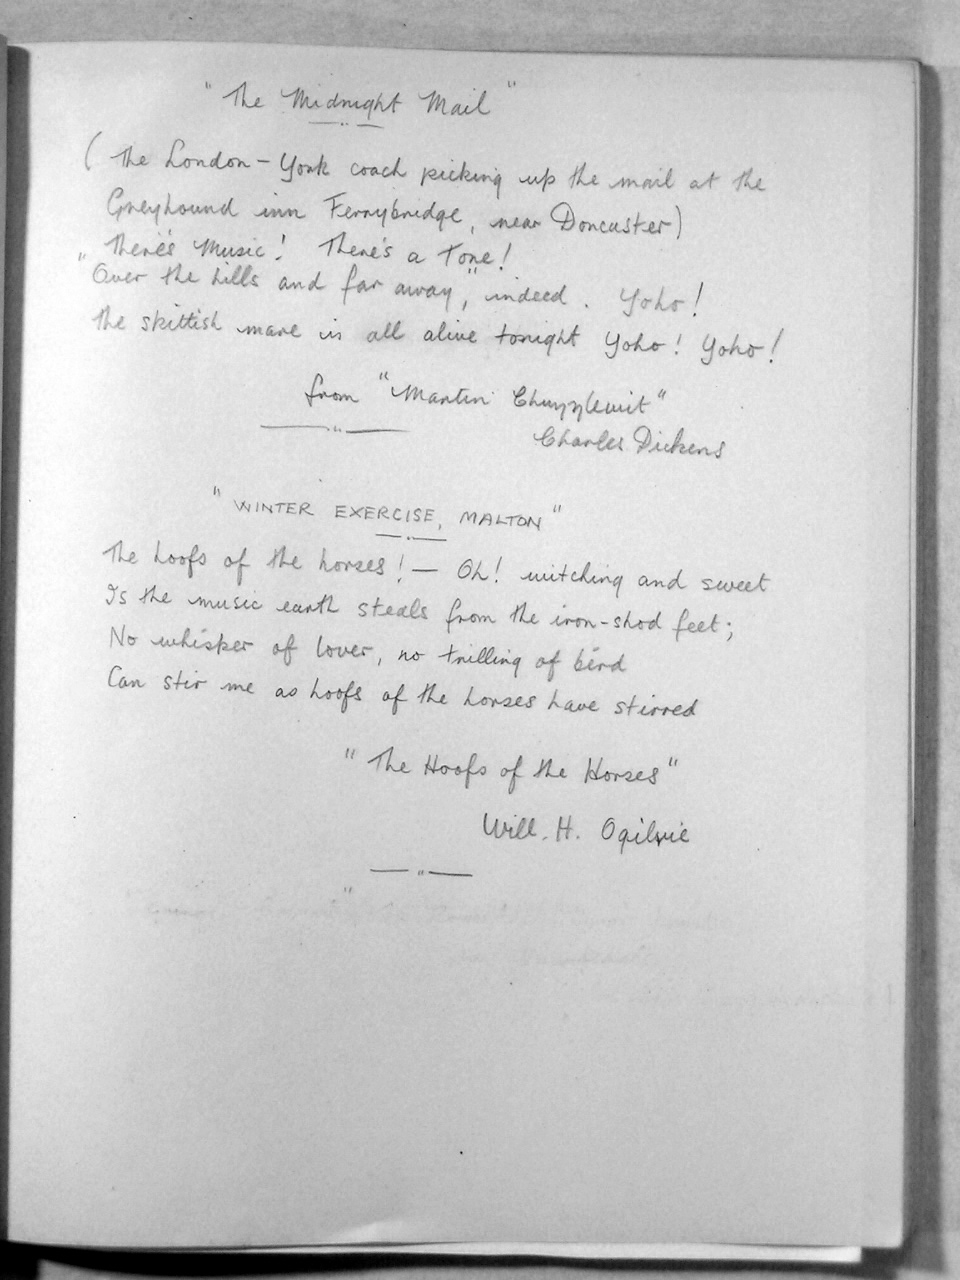 "The Midnight Mail"
(The London – York coach picking up the mail at the
Greyhound inn Ferrybridge, near Doncaster)
There's Music! There's a Tone!
"Over the hills and far away," indeed. Yoho!
The skittish mare is all alive tonight Yoho! Yoho!
from "Martin Chuzzlewit"
Charles Dickens
"WINTER EXERCISE, MALTON"
The hoofs of the horses! — Oh! witching and sweet
Is the music earth steals from the iron-shod feet;
No whisper of lover, no trilling of bird
Can stir me as hoofs of the horses have stirred
"The Hoofs of the Horses"
Will. H. Ogilvie